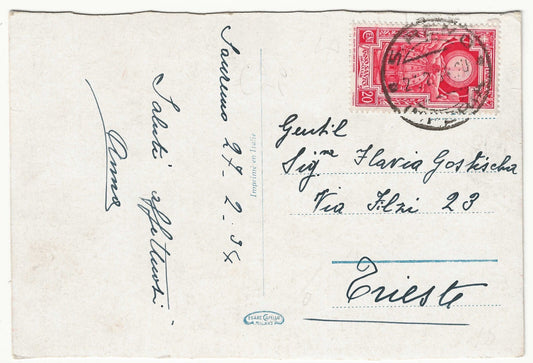 Sanremo 27-2-34
Saluti affettuosi
Anna
Imprimé en Italie
20
Gentil
Sigⁿᵃ Flavia Gostischa
Via Filzi 23
Trieste